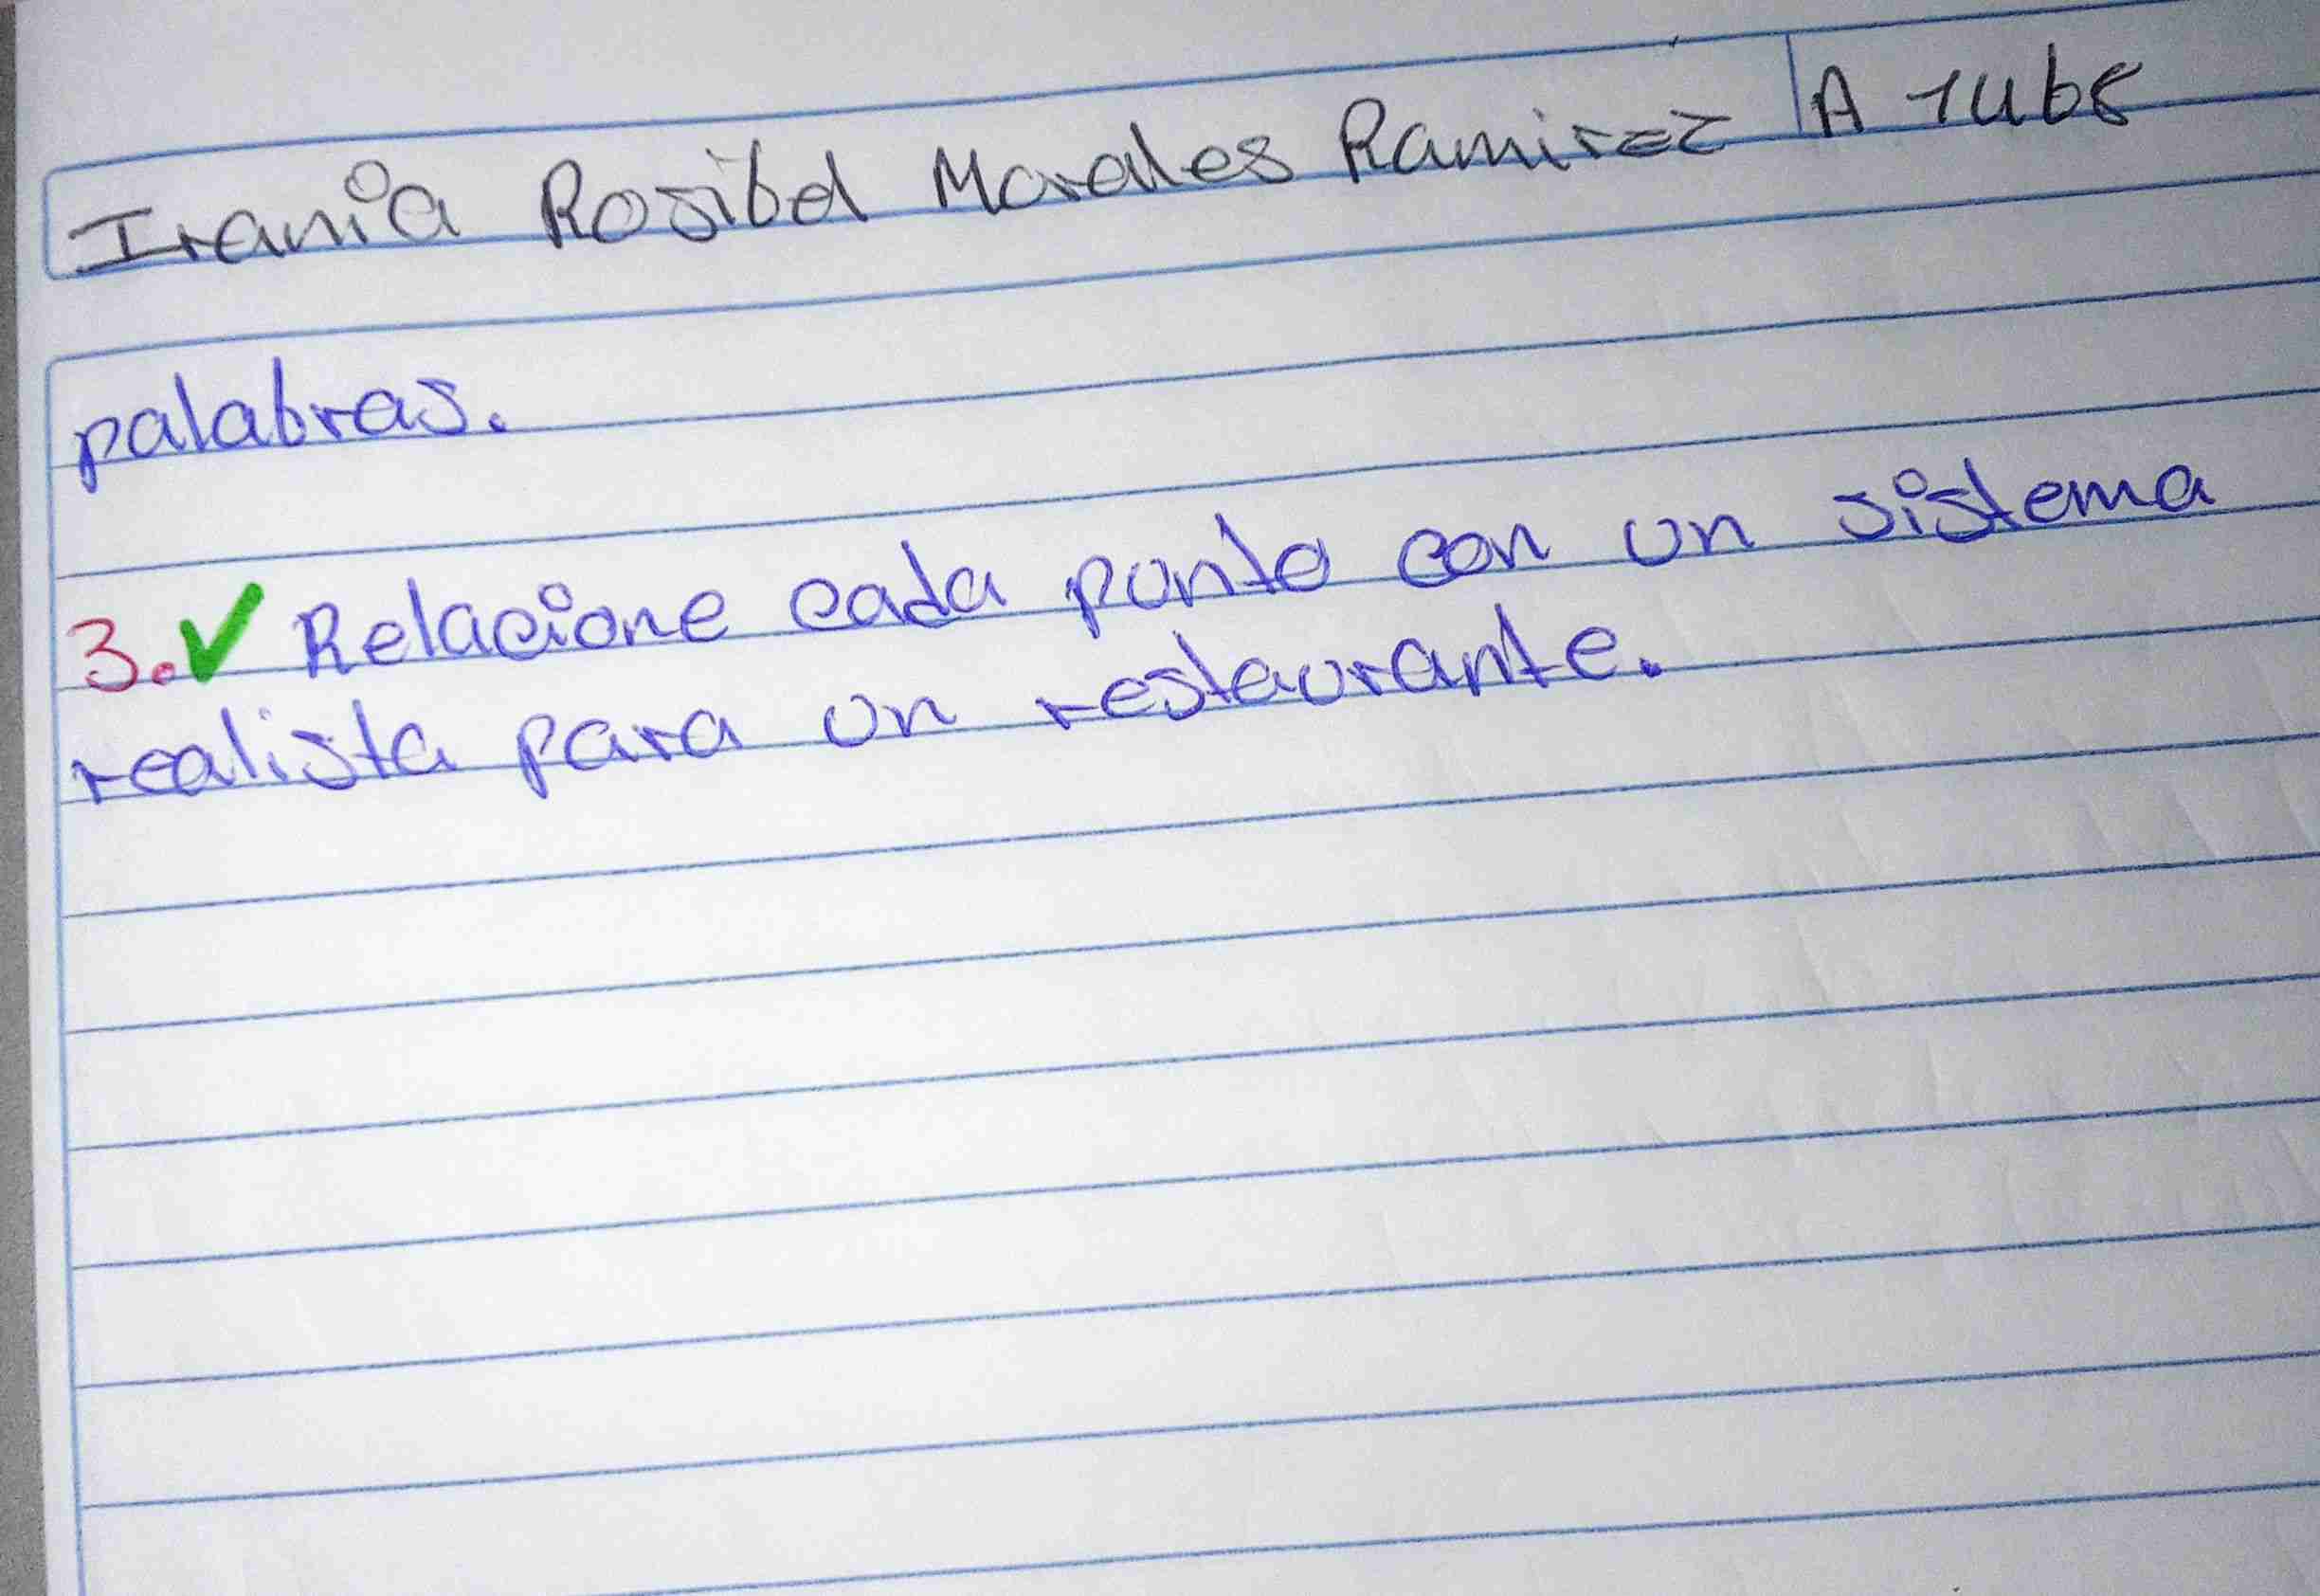 Irania Rosibel Morales Ramirez A
palabras.
3.✓ Relacione cada punto con un sistema
realista para un restaurante.